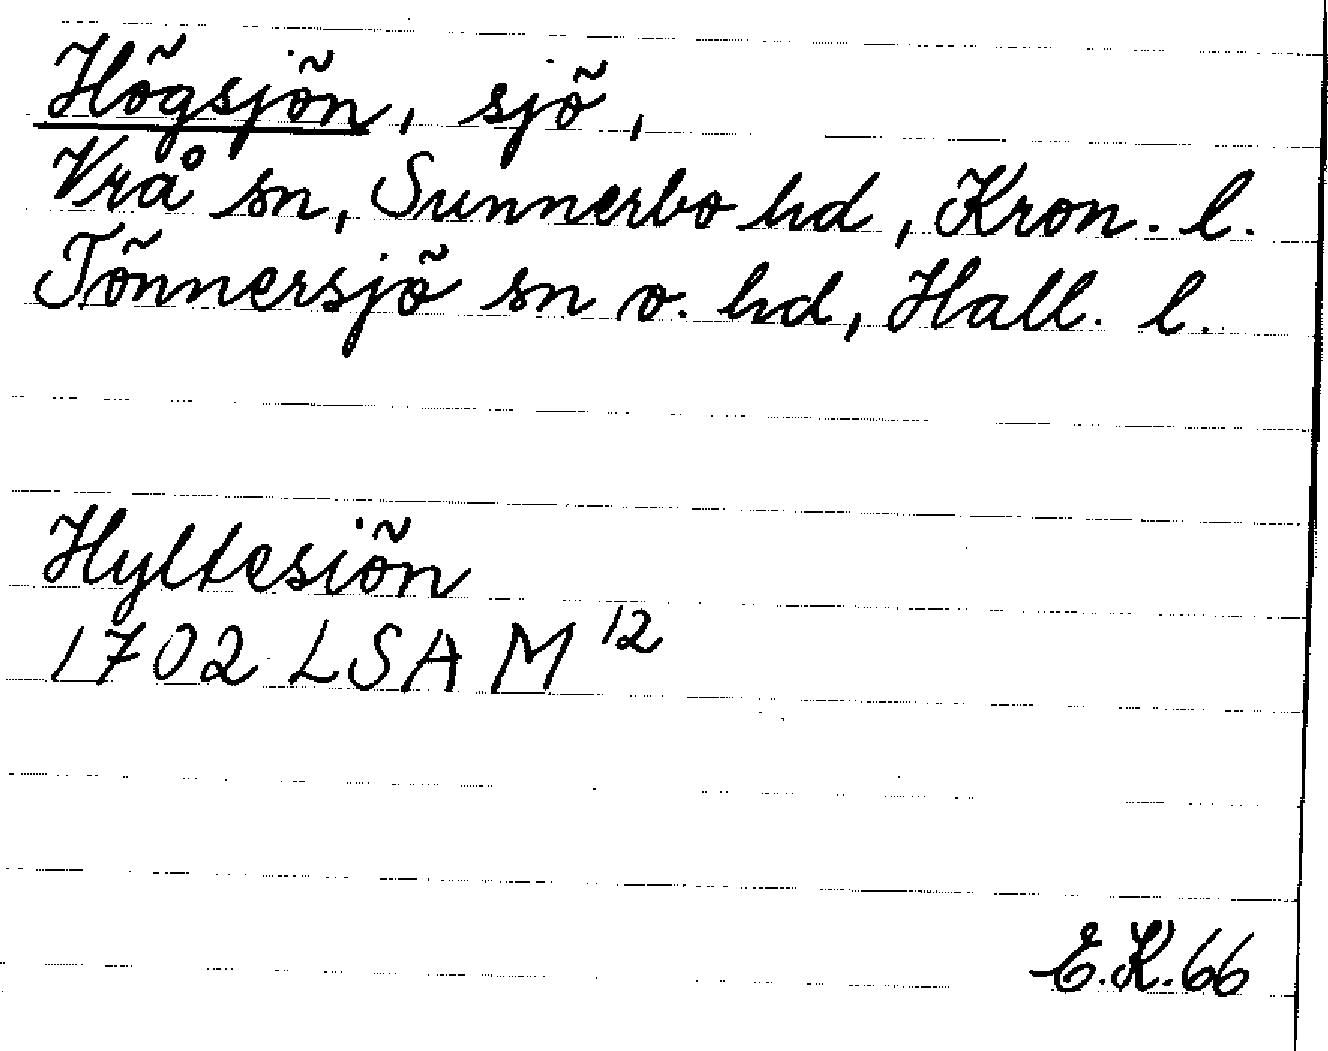 Högsjön, sjö,
Vrå sn, Sunnerbo hd, Kron. l.
Tönnersjö sn o. hd, Hall. l.
Hyltesiön
1702 LSA M 12
E.K.66